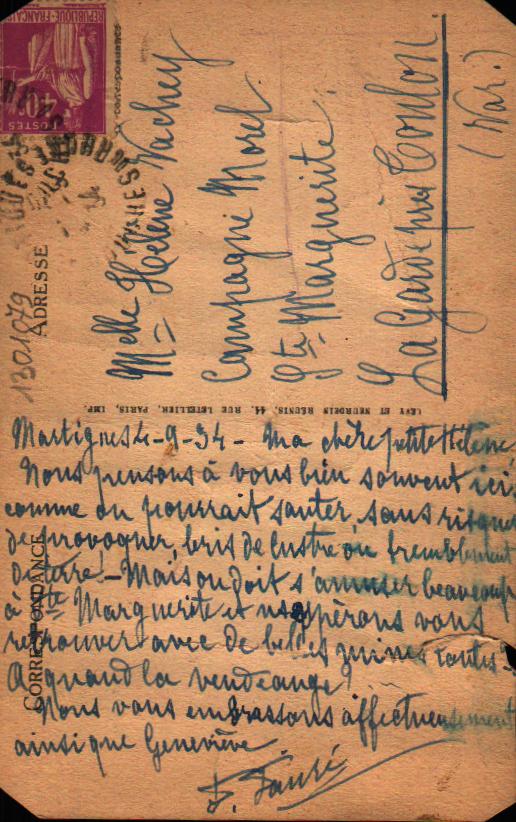 RÉPUBLIQUE FRANÇAISE
40c
POSTES
ADRESSE
1301879
Melle Hélène Vachey
Campagne Morel
Ste Marguerite.
La Garde près Toulon.
(Var.)
LÉVY ET NEURDEIN RÉUNIS, 44, RUE LETELLIER, PARIS, IMP.
CORRESPONDANCE
Martigues 4-9-34 - Ma chère petite Hélène
Nous pensons à vous bien souvent ici
comme on pourrait sauter, sans risquer
de provoquer, bris de lustre ou tremblement
de terre! - Mais on doit s'amuser beaucoup
à Ste Marguerite et ns espérons vous
retrouver avec de belles mines toutes 2.
A quand la vendange?
Nous vous embrassons affectueusement
ainsi que Geneviève.
F. Fauré